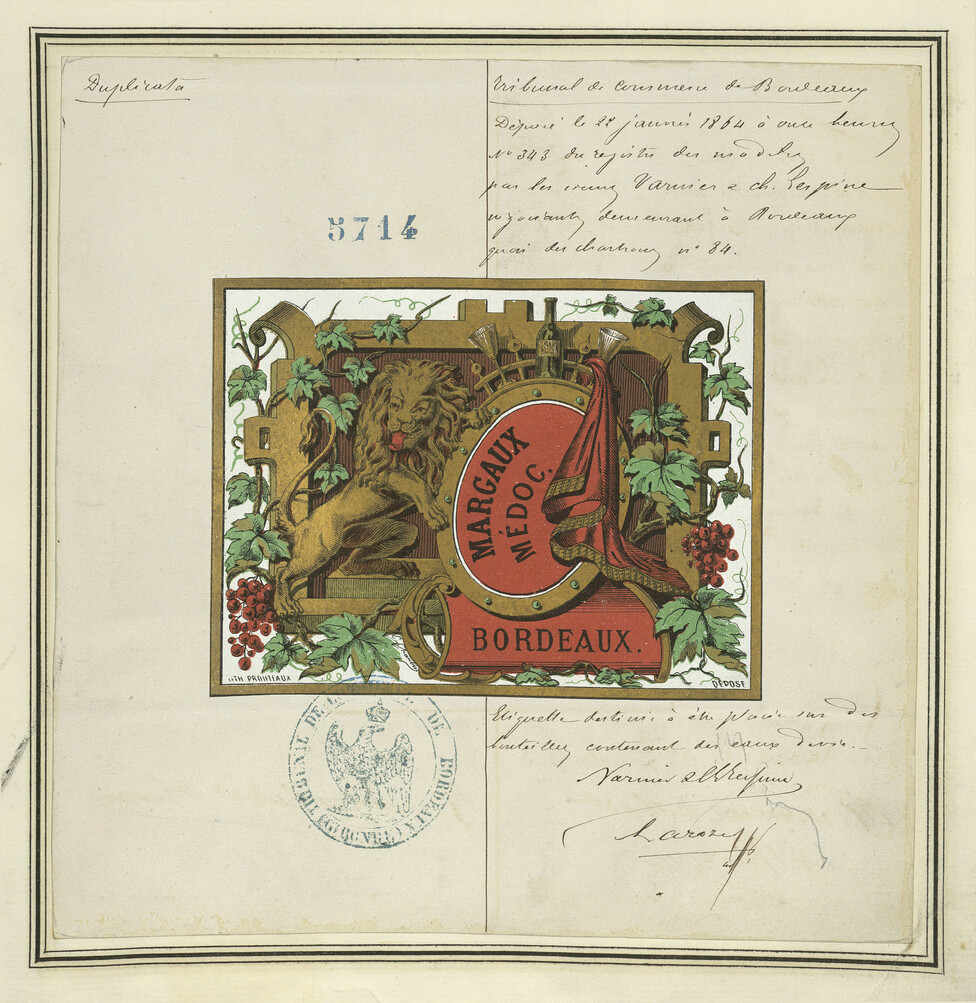 Duplicata
Tribunal de Commerce de Bordeaux
Déposé le 22 janvier 1864 à onze heures
No 343 du registre des modèles
par les sieurs Varnier & ch. Lespine
négociants demeurant à Bordeaux
quai des chartrons no 84.
5714
MARGAUX
MÉDOC.
BORDEAUX.
LITH PROUTEAUX
DÉPOSÉ
TRIBUNAL DE COMMERCE DE BORDEAUX
Etiquette destinée à être placée sur des
bouteilles contenant des eaux de vie.
Varnier & Ch Lespine